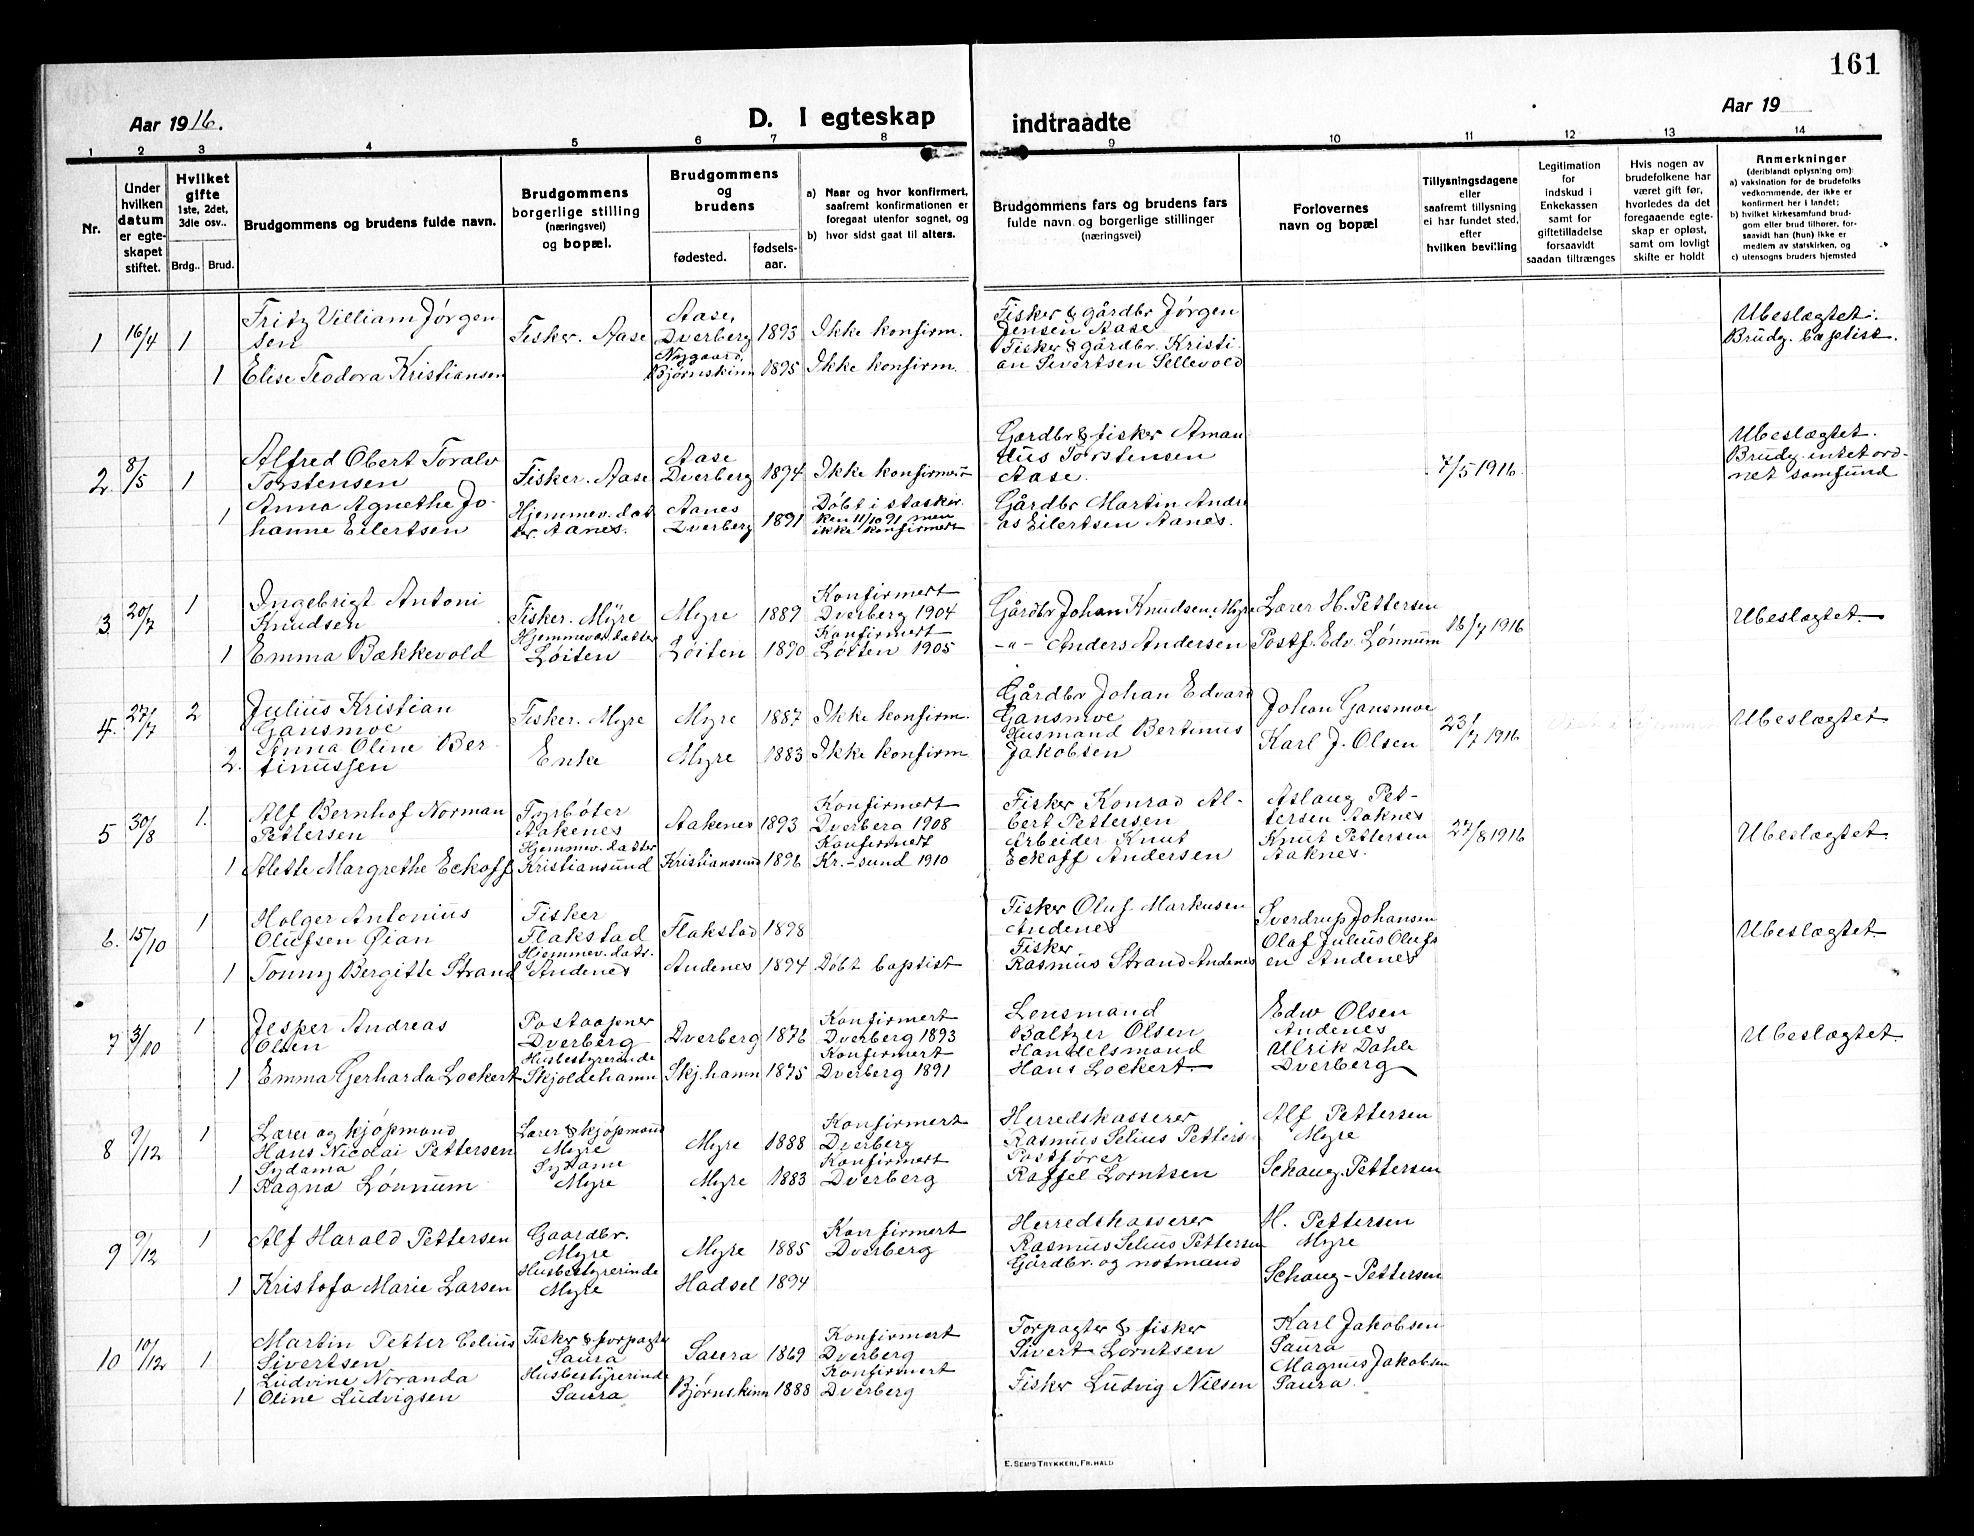 161
Aar 1916.
D. I egteskap
indtraadte
Aar 19
1 2 3 4 5 6 7 8 9 10 11 12 13 14
Nr.
Under
hvilken
datum
er egte-
skapet
stiftet.
Hvilket
gifte
1ste, 2det,
3die osv..
Brdg.. Brud.
Brudgommens og brudens fulde navn.
Brudgommens
borgerlige stilling
(næringsvei)
og bopæl.
Brudgommens
og
brudens
fødested.
fødsels-
aar.
a) Naar og hvor konfirmert,
saafremt konfirmationen er
foregaat utenfor sognet, og
b) hvor sidst gaat til alters.
Brudgommens fars og brudens fars
fulde navn og borgerlige stillinger
(næringsvei)
Forlovernes
navn og bopæl
Tillysningsdagene
eller
saafremt tillysning
ei har fundet sted,
efter
hvilken bevilling
Legitimation
for
indskud i
Enkekassen
samt for
giftetilladelse
forsaavidt
saadan tiltrænges
Hvis nogen av
brudefolkene har
været gift før,
hvorledes da det
foregaaende egte-
skap er opløst,
samt om lovligt
skifte er holdt
Anmerkninger
(deriblandt oplysning om):
a) vaksination for de brudefolks
vedkommende, der ikke er
konfirmert her i landet;
b) hvilket kirkesamfund brud-
gom eller brud tilhører, for-
saavidt han (hun) ikke er
medlem av statskirken, og
c) utensogns bruders hjemsted
1 16/4 1
Fritz Villiam Jørgen
sen
Fisker. Aase
Aase,
Dverberg
1893
Ikke konfirm.
Fisker & gårdbr Jørgen
Jensen Aase
Ubeslægtet.
Brudg. baptist.
1
Elise Teodora Kristiansen
Nygaard,
Bjørnskinn
1895
Ikke konfirm.
Fisker & gårdbr. Kristi-
an Sivertsen Sellevold
2. 8/5 1
Alfred Obert Toralv
Torstensen
Fisker. Aase
Aase
Dverberg
1894
Ikke konfirmert
Gardbr & fisker Aman
dus Torstensen
Aase.
7/5 1916.
Ubeslægtet.
Brudg. intet ord-
net samfund
1
Anna Agnethe Jo-
hanne Eilertsen
Hjemmev. dat
ter. Aanes.
Aanes
Dverberg
1891
Døbt i statskir
ken 11/10 91 men
ikke konfirmert
Gårdbr Martin Andre
as Eilertsen Aanes.
3. 20/7 1
Ingebrigt Antoni
Knudsen
Fisker. Myre
Myre
1889
Konfirmert
Dverberg 1904
Gårdbr Johan Knudsen, Myre
Lærer H. Pettersen
16/7 1916
Ubeslægtet.
1
Emma Bækkevold
Hjemmev. datter
Løiten
Løiten
1890
Konfirmert
Løiten 1905
-"- Anders Andersen
Postf. Edv. Lønnum
4. 27/7 2
Julius Kristian
Gansmoe
Fisker. Myre
Myre
1887
Ikke konfirm.
Gårdbr Johan Edvard
Gansmoe
Johan Gansmoe
23/7 1916
Ubeslægtet
2.
Anna Oline Ber-
tinussen
Enke
Myre
1883
Ikke konfirm
Husmand Bertinus
Jakobsen
Karl J. Olsen
5 30/8 1.
Alf Bernhof Norman
Pettersen
Aakenes
Aakenes
1893
Konfirmert
Dverberg 1908
Fisker Konrad Al-
bert Pettersen
Aslaug Pet-
tersen Aaknes
27/8 1916
Ubeslægtet
1
Alette Margrethe Eckoff
Hjemmev. datter
Kristiansund
Kristiansund
1896
Konfirmert
Kr.-sund 1910
Arbeider Knut
Eckoff Andersen
Knut Pettersen
Aaknes.
6. 15/10 1
Holger Antonius
Olufsen Øian
Fisker
Flakstad
Flakstad
1898
Fisker Oluf Markusen
Andenes
Sverdrup Johansen
Ubeslægtet.
1
Tonny Bergitte Strand
Hjemmev. datt.
Andenes
Andenes
1894
Døbt baptist
Fisker
Rasmus Strand Andenes
Olaf Julius Olufs
en Andenes
7 3/10 1
Jesper Andreas
Olsen
Postaapner
Dverberg
Dverberg
1876
Konfirmert
Dverberg 1893
Lensmand
Baltzer Olsen
Edw Olsen
Andenes
Ubeslægtet.
1
Emma Gerharda Lockert
Husbestyrerinde
Skjoldehamn
Skj.hamn
1875
Konfirmert
Dverberg 1891
Handelsmand
Hans Lockert.
Ulrik Dahle
Dverberg
8 9/12 1
Lærer og kjøpmand
Hans Nicolai Pettersen
Lærer & kjøpmand
Myre
Myre
1888
Konfirmert
Dverberg
Herredskasserer
Rasmus Selius Petters
Alf Pettersen
Myre
1
Sydama
Ragna Lønnum
Sydame
Myre
Myre
1883
Konfirmert
Dverberg
Postfører
Raffel Lorntsen
Schaug-Pettersen
9 9/12 1
Alf Harald Pettersen
Gaardbr.
Myre
Myre
1885
Konfirmert
Dverberg
Herredskasserer
Rasmus Selius Pettersen
H. Pettersen
Myre
1
Kristofa Marie Larsen
Husbestyrerinde
Myre
Hadsel
1894
Gårdbr. og notmand
Schaug-Pettersen
10 10/12 1
Martin Petter Celius
Sivertsen
Fisker & forpagter
Saura
Saura
1869
Konfirmert
Dverberg
Forpagter & fisker
Sivert Lorntsen
Karl Jakobsen
Saura
1
Ludvine Noranda
Oline Ludvigsen
Husbestyrerinde
Saura
Bjørnskinn
1888
Konfirmert
Dverberg
Fisker Ludvig Nilsen
Magnus Jakobsen
Saura.
E. Sem's Trykkeri, Fr.hald